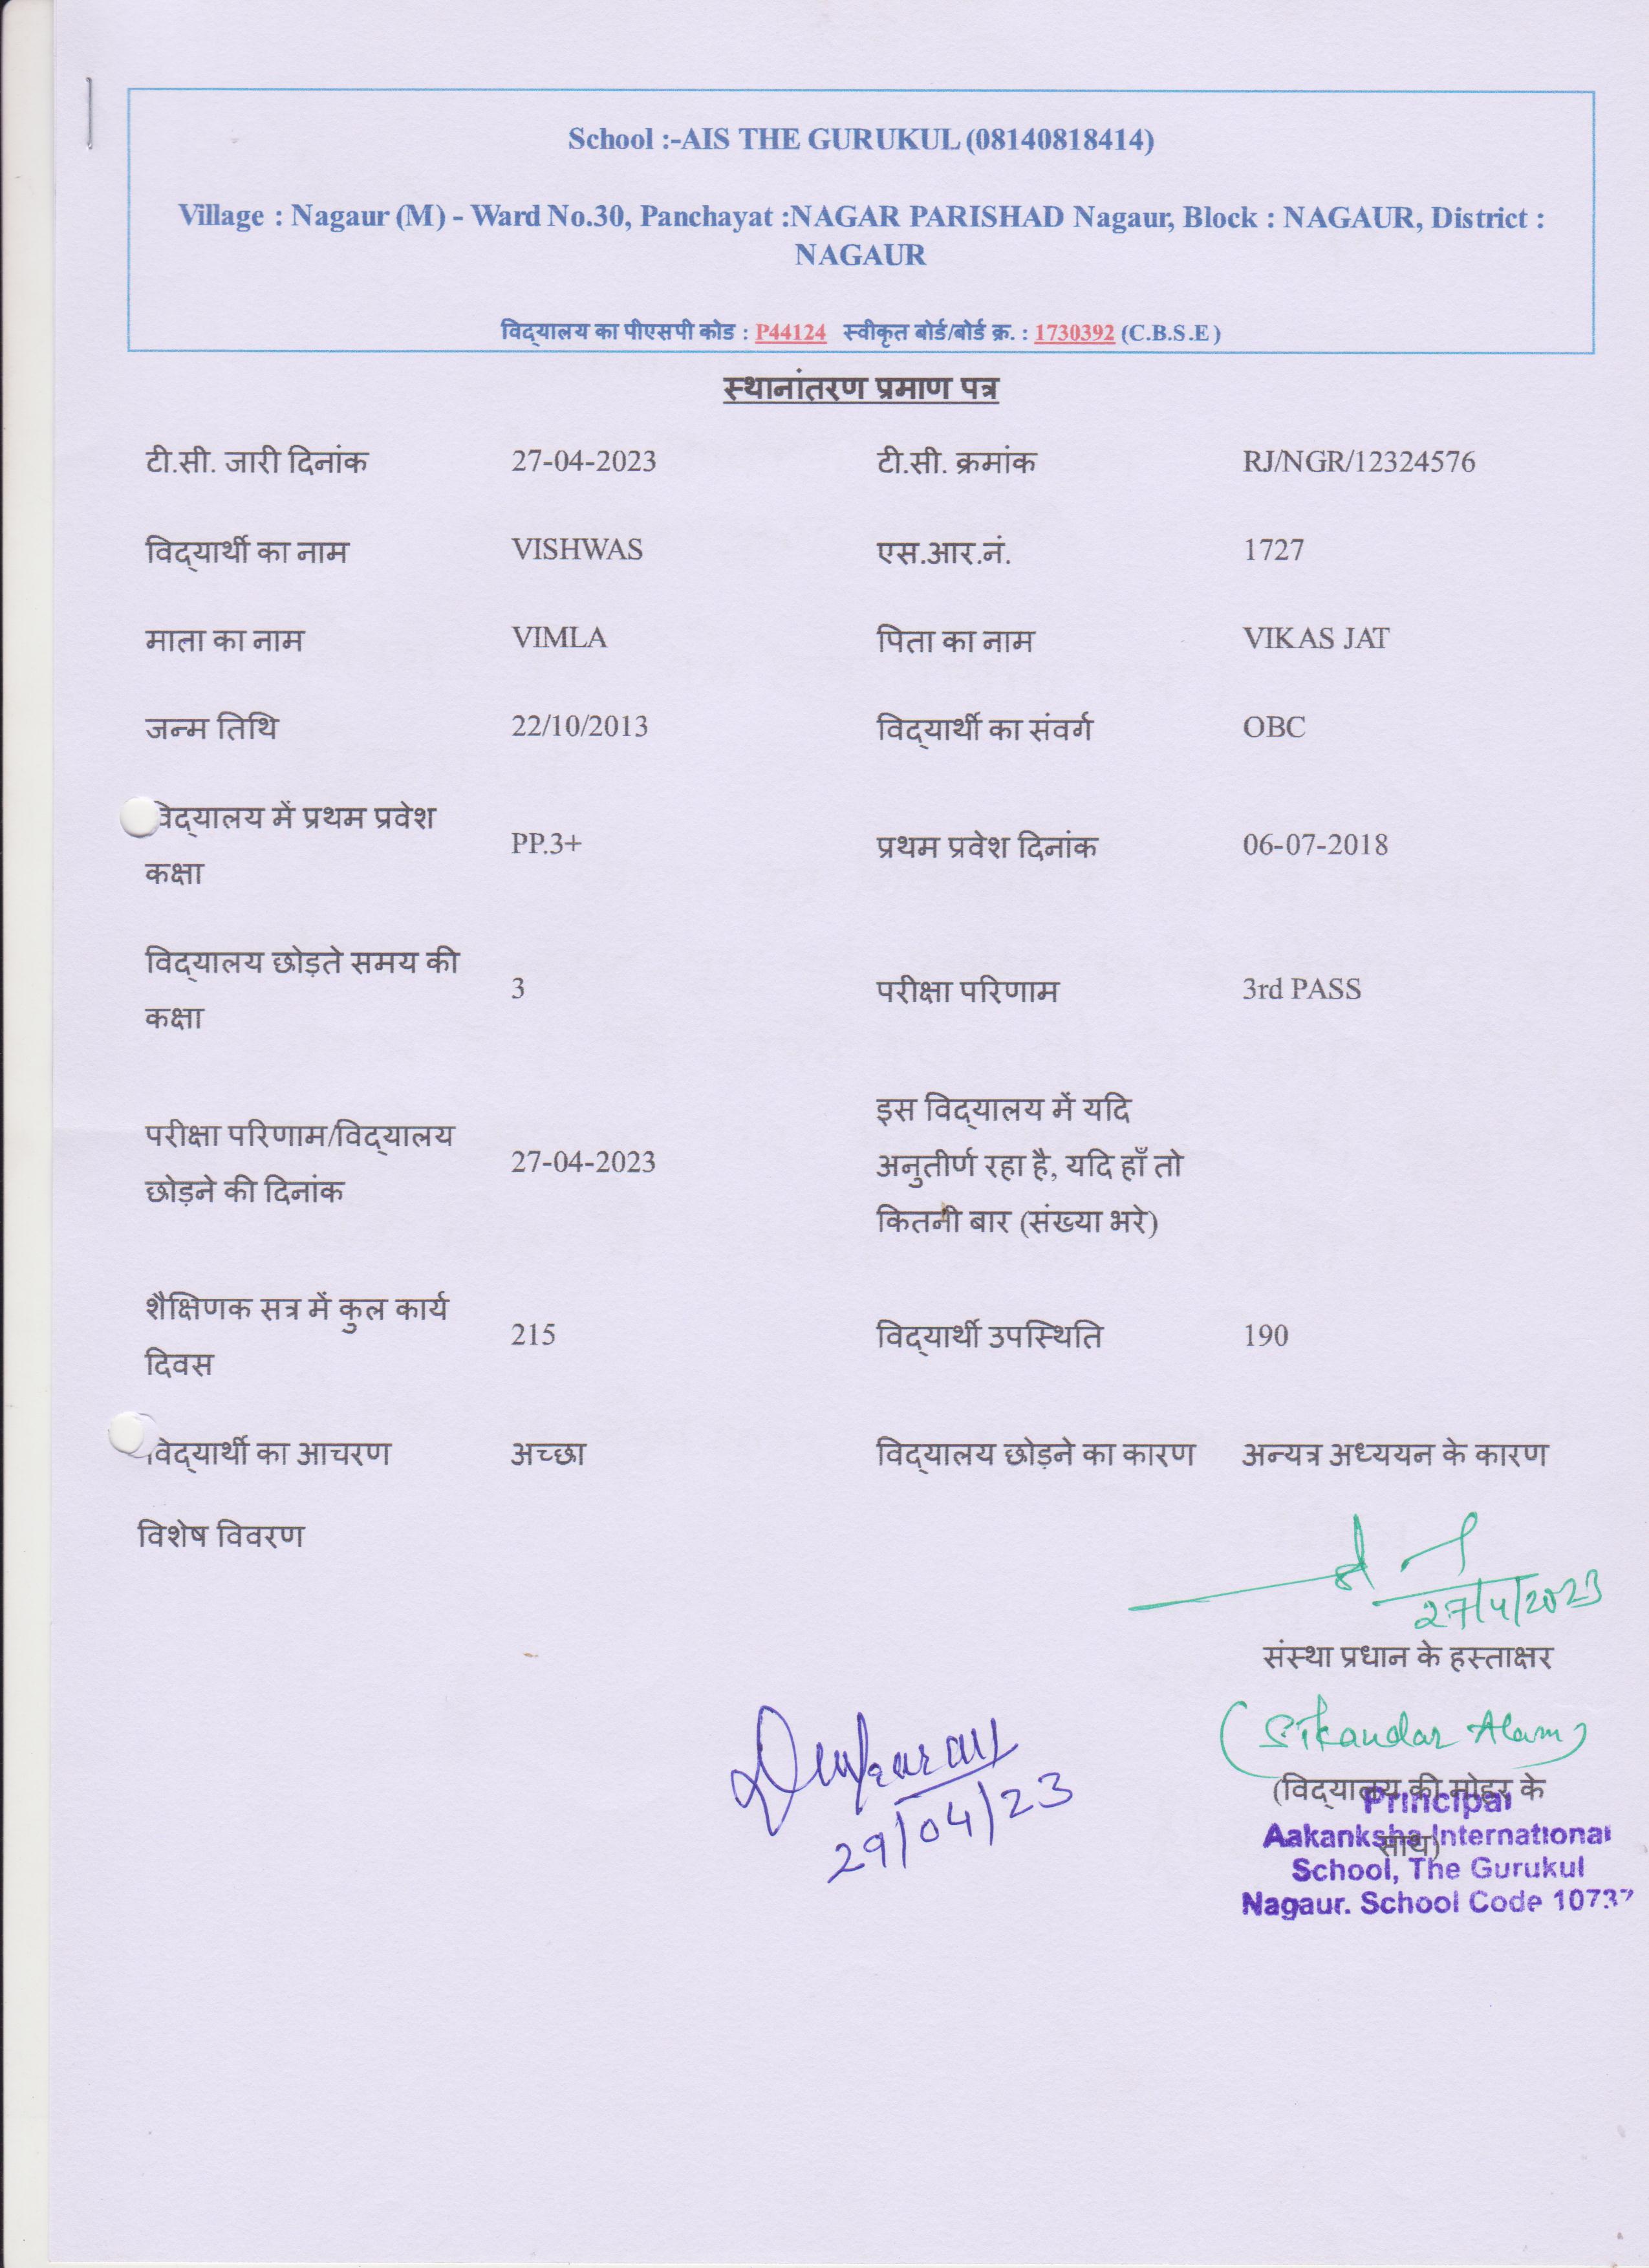 School :-AIS THE GURUKUL (08140818414)
Village : Nagaur (M) - Ward No.30, Panchayat :NAGAR PARISHAD Nagaur, Block : NAGAUR, District :
NAGAUR
विद्यालय का पीएसपी कोड : P44124 स्वीकृत बोर्ड/बोर्ड क्र. : 1730392 (C.B.S.E)
स्थानांतरण प्रमाण पत्र
टी.सी. जारी दिनांक 27-04-2023 टी.सी. क्रमांक RJ/NGR/12324576
विद्यार्थी का नाम VISHWAS एस.आर.नं. 1727
माता का नाम VIMLA पिता का नाम VIKAS JAT
जन्म तिथि 22/10/2013 विद्यार्थी का संवर्ग OBC
विद्यालय में प्रथम प्रवेश
कक्षा
PP.3+
प्रथम प्रवेश दिनांक 06-07-2018
विद्यालय छोड़ते समय की
कक्षा
3
परीक्षा परिणाम 3rd PASS
परीक्षा परिणाम/विद्यालय
छोड़ने की दिनांक
27-04-2023
इस विद्यालय में यदि
अनुतीर्ण रहा है, यदि हाँ तो
कितनी बार (संख्या भरे)
शैक्षिणक सत्र में कुल कार्य
दिवस
215
विद्यार्थी उपस्थिति 190
विद्यार्थी का आचरण अच्छा विद्यालय छोड़ने का कारण अन्यत्र अध्ययन के कारण
विशेष विवरण
27/4/2023
संस्था प्रधान के हस्ताक्षर
(Sikandar Alam)
29/04/23
(विद्यालय की मोहर के
साथ)
Principal
Aakanksha International
School, The Gurukul
Nagaur. School Code 10737